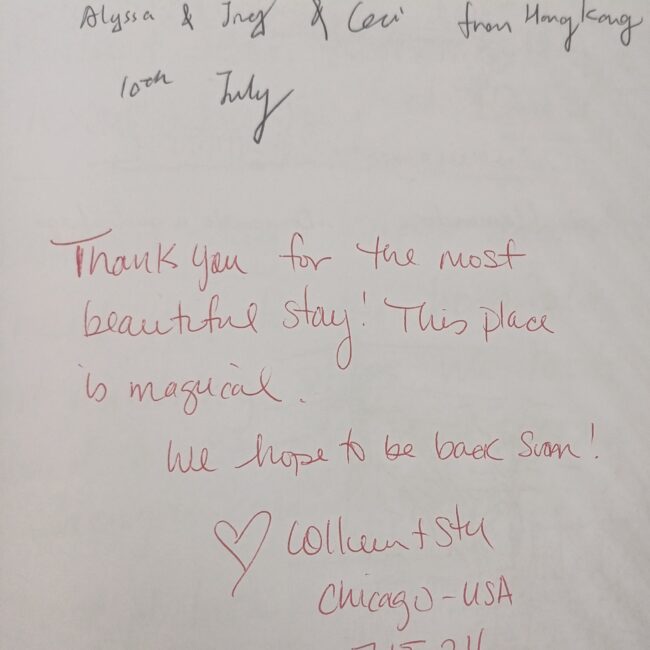 Alyssa & & Ceci from Hong Kong
10th July
Thank you for the most
beautiful stay! This place
is magical.
We hope to be back soon!
♡ Colleen +
Chicago - USA